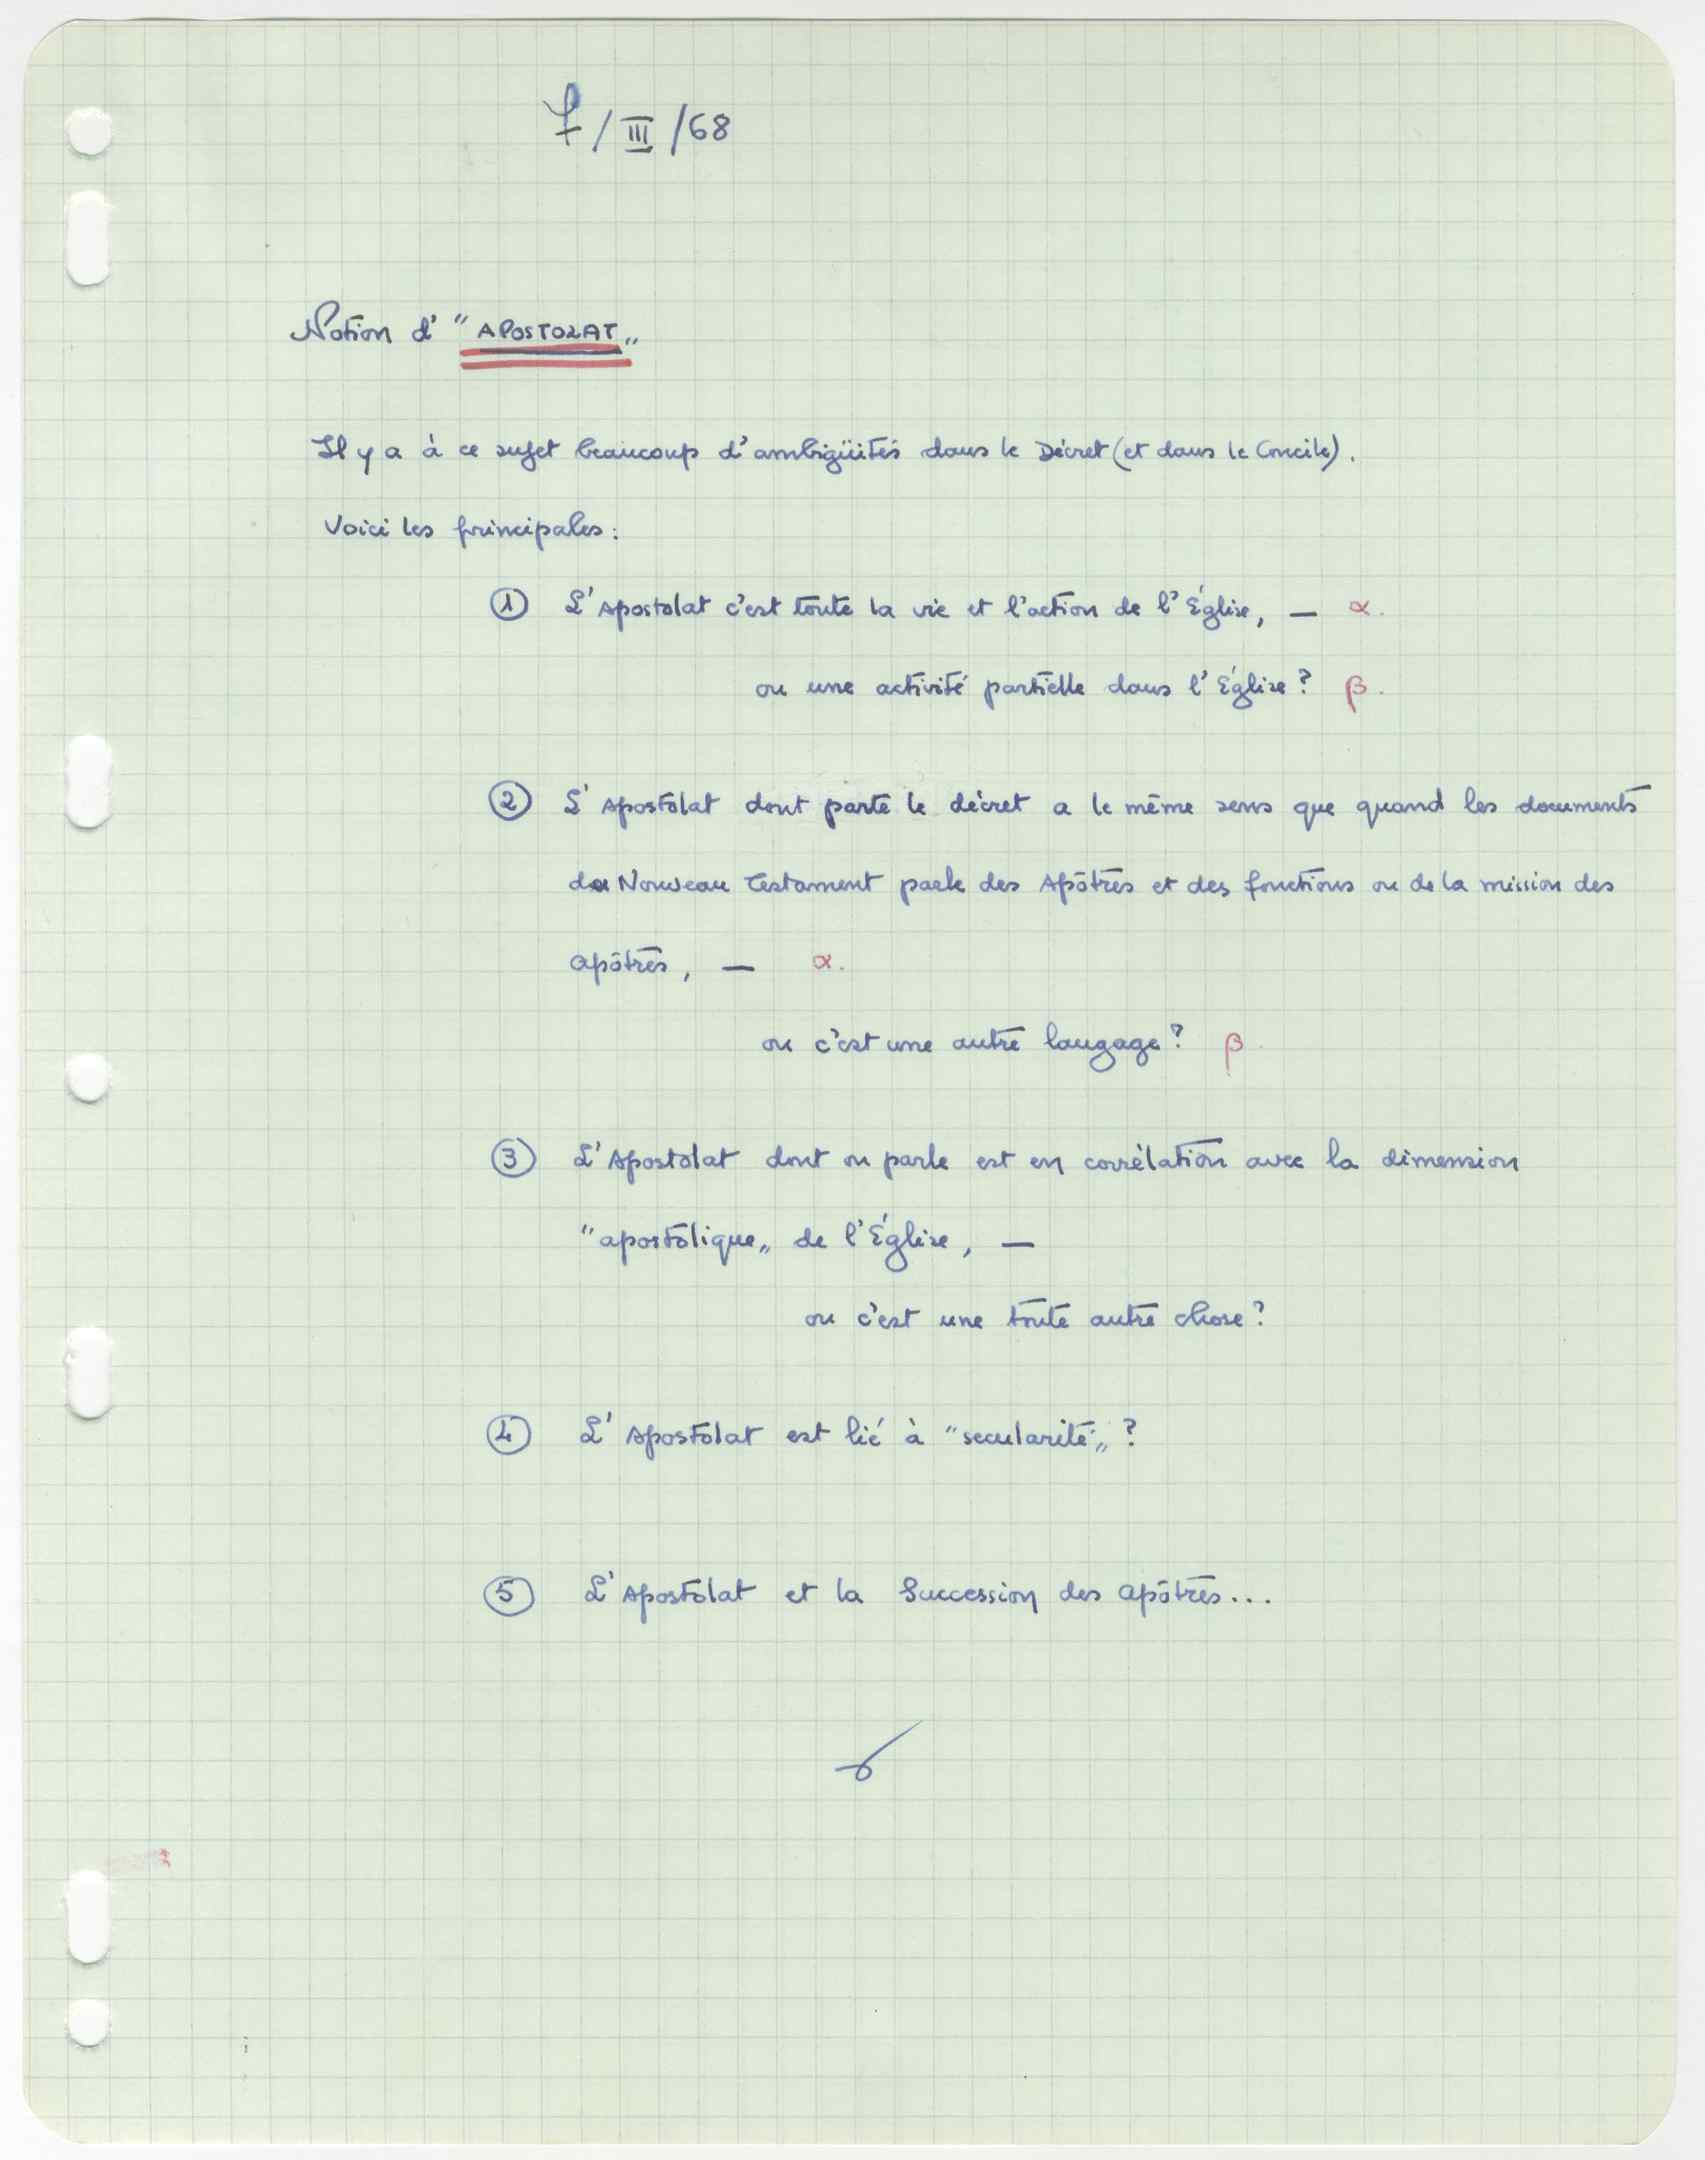 7/III/68
Notion d' "APOSTOLAT„
Il y a à ce sujet beaucoup d'ambigüités dans le Décret (et dans le Concile).
Voici les principales :
① L'Apostolat c'est toute la vie et l'action de l'Église, — α.
ou une activité partielle dans l'Église? β.
② L'Apostolat dont parle le décret a le même sens que quand les documents
du Nouveau Testament parle des Apôtres et des fonctions ou de la mission des
apôtres, — α.
ou c'est une autre langage? β.
③ L'Apostolat dont on parle est en corrélation avec la dimension
"apostolique„ de l'Église, —
ou c'est une toute autre chose?
④ L'Apostolat est lié à "secularité„ ?
⑤ L'Apostolat et la Succession des apôtres...